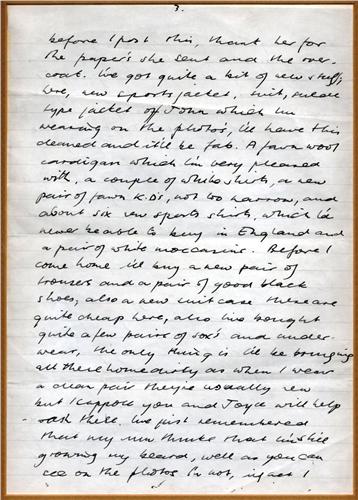 3.
before I post this, thank her for
the paper's she sent and the over-
coat. I've got quite a bit of new stuff
here, new sports jacket, suit, suede
type jacket off John which I'm
wearing on the photos, I'll have this
cleaned and it'll be fab. A fawn wool
cardigan which I'm very pleased
with, a couple of white shirts, a new
pair of fawn K.D's, not too narrow, and
about six new sports shirts, which I'd
never be able to buy in England and
a pair of white moccasins. Before I
come home I'll buy a new pair of
trousers and a pair of good black
shoes, also a new suitcase these are
quite cheap here, also I've bought
quite a few pairs of sox's and under-
wear, the only thing is I'll be bringing
all these home dirty as when I wear
a clean pair they're usually new
but I suppose you and Joyce will help
wash these. I've just remembered
that my mum thinks that I'm still
growing my beard, well as you can
see on the photos I'm not, infact I